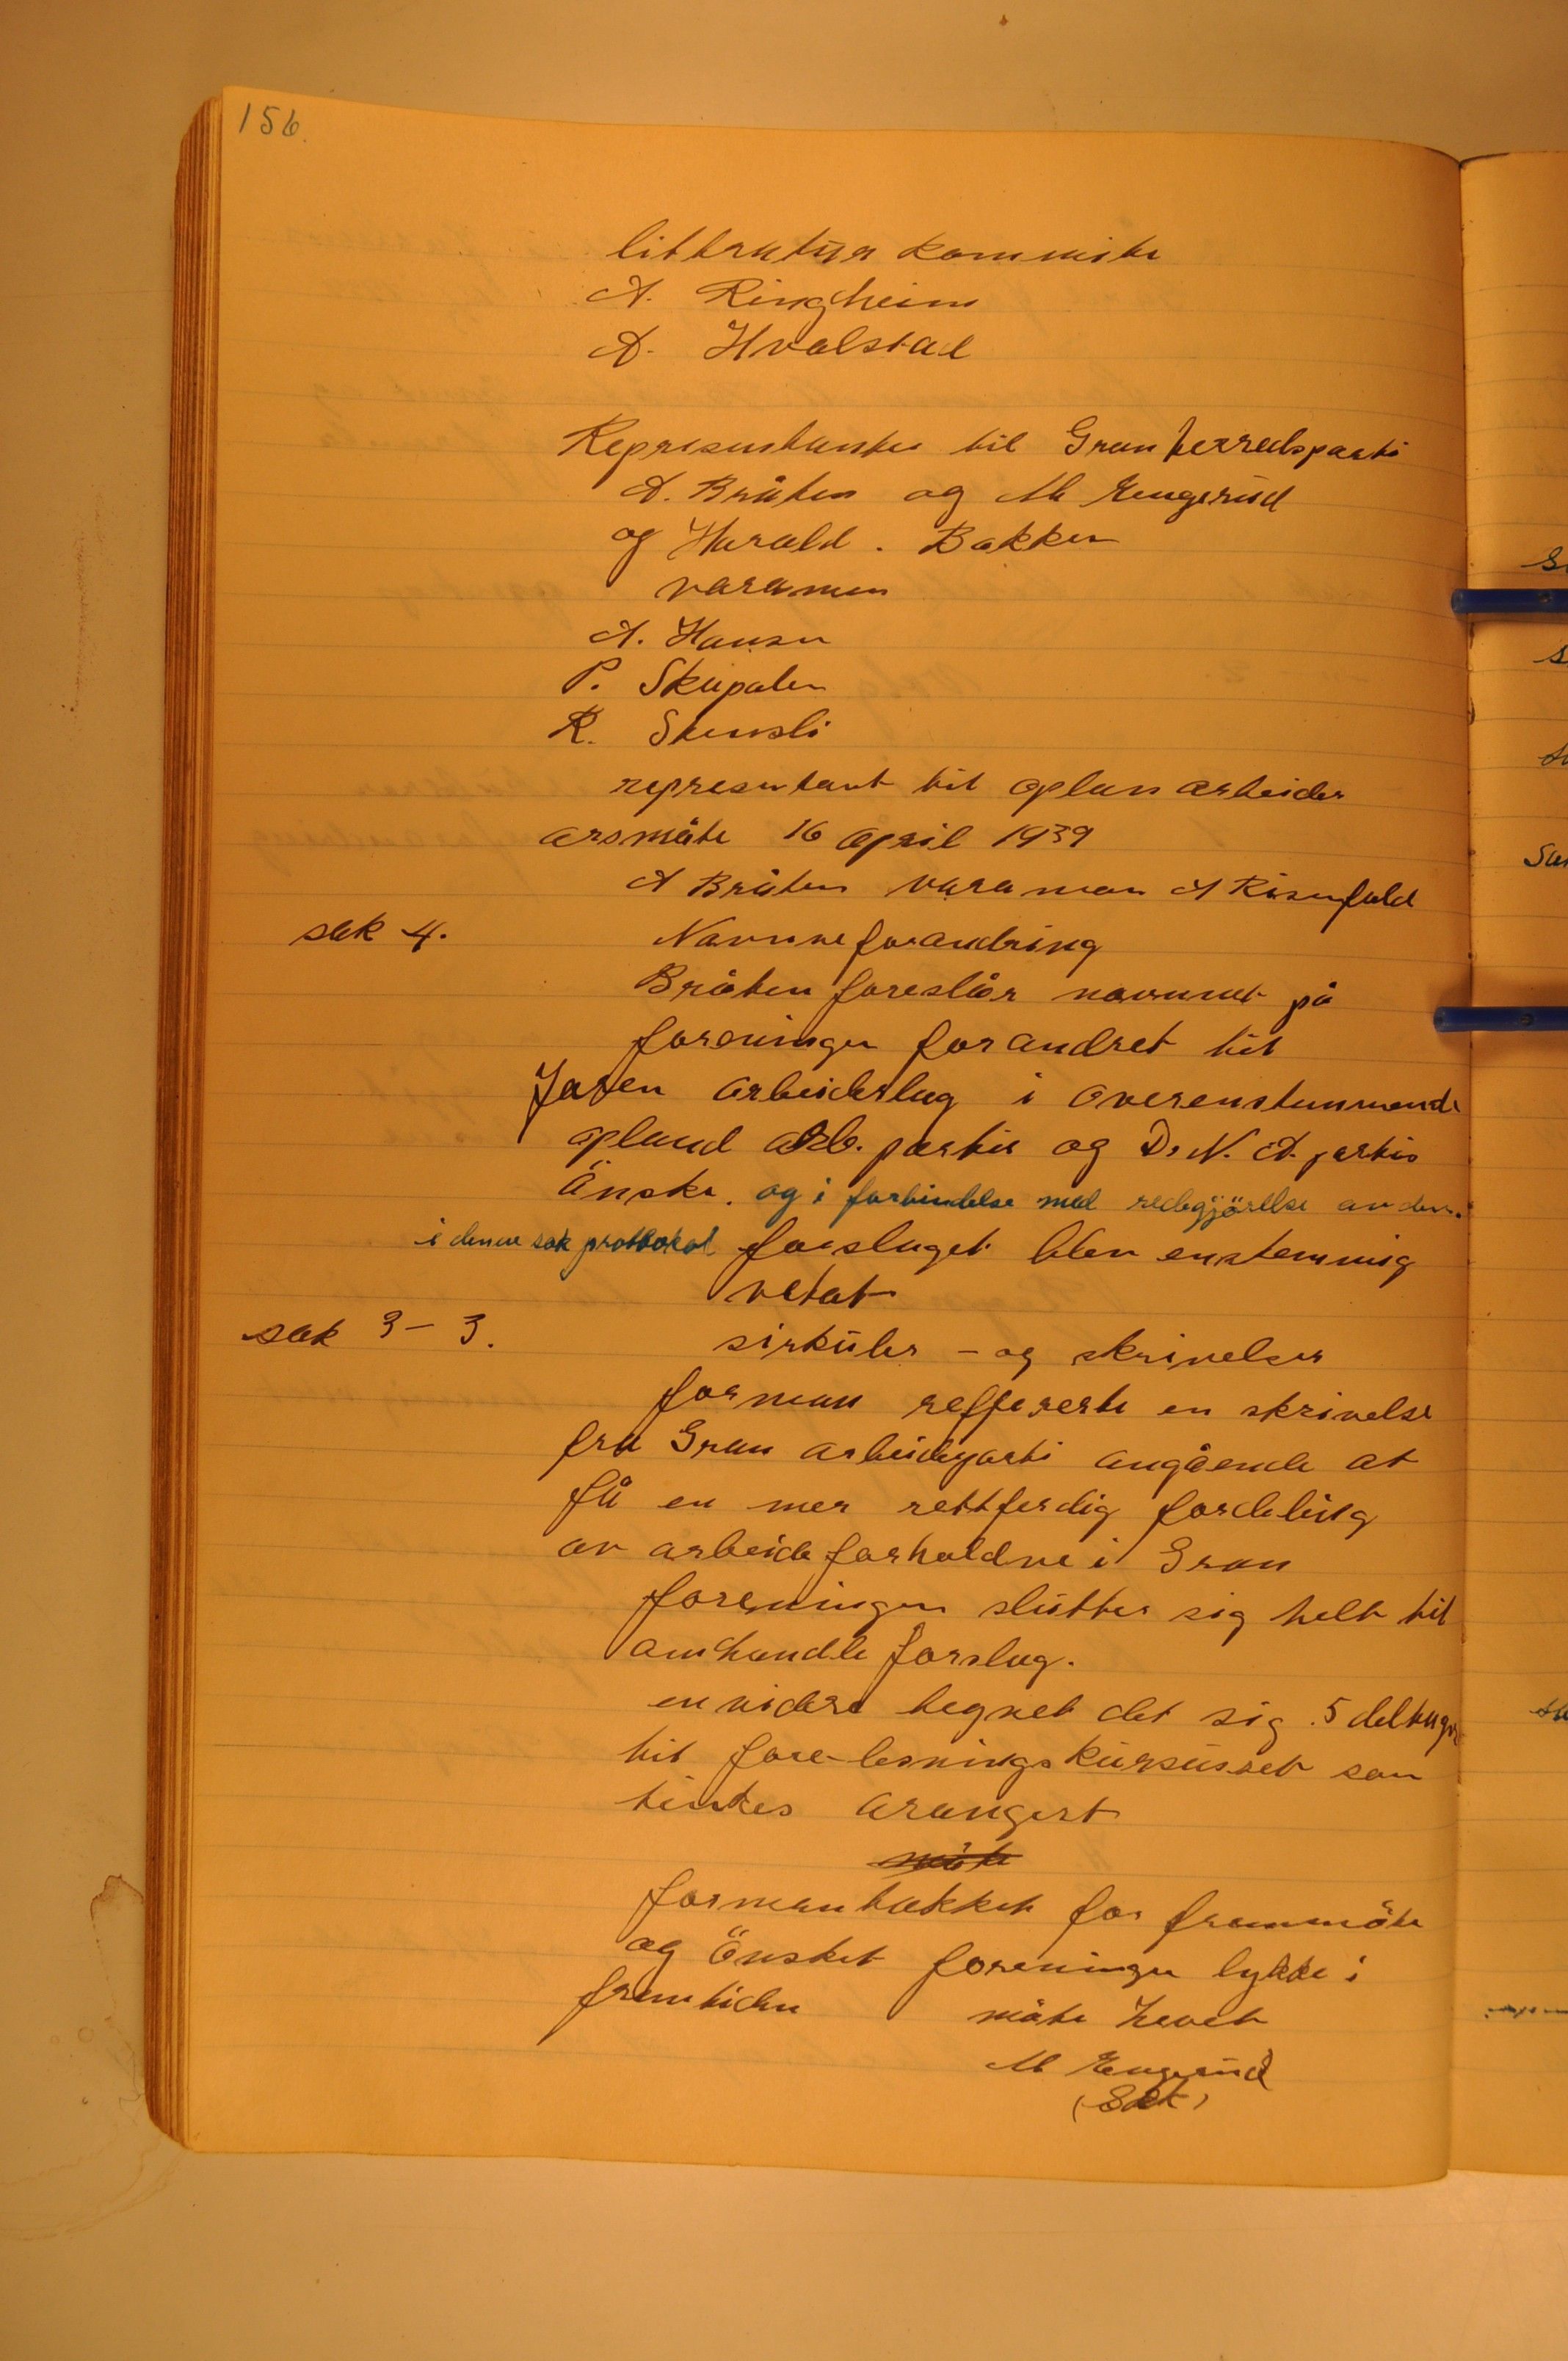 156.
litteratur kommite
A. Ringheim
A. Hvalstad
Representanter til Gran herredsparti
A. Bråten og M Engerud
og Harald. Bakken
varamen
A. Hansen
P. Skiaparlen
R. Stensli
representant til oplan arbeider
arsmöte 16 april 1939
A Bråten vara man A Risenfald
sak 4. Navneforandring
Bråten foreslår navnet på
foreningen forandret til
Jaren arbeiderlag i overenstemmende
opland arb. partis og D. N. A. partis
Önske. og i forbindelse med redegjörelse av den.
i denne sak protokol forslaget blev enstemmig
vetat
sak 3-3. sirkuler - og skrivelser
forman reffererte en skrivelse
fra Gran arbeiderparti angående at
få en mer rettferdig fordeling
av arbeide forholdne i Gran
foreningen slutter sig helt til
omhandle forslag.
en videre tegnet det sig 5 deltager
til fore-lesningskursusset som
tenkes arangert
möte
forman takket for fremmöte
og Önsket foreningen lykke i
fremtiden möte hevet
M Engerud
(Sek)